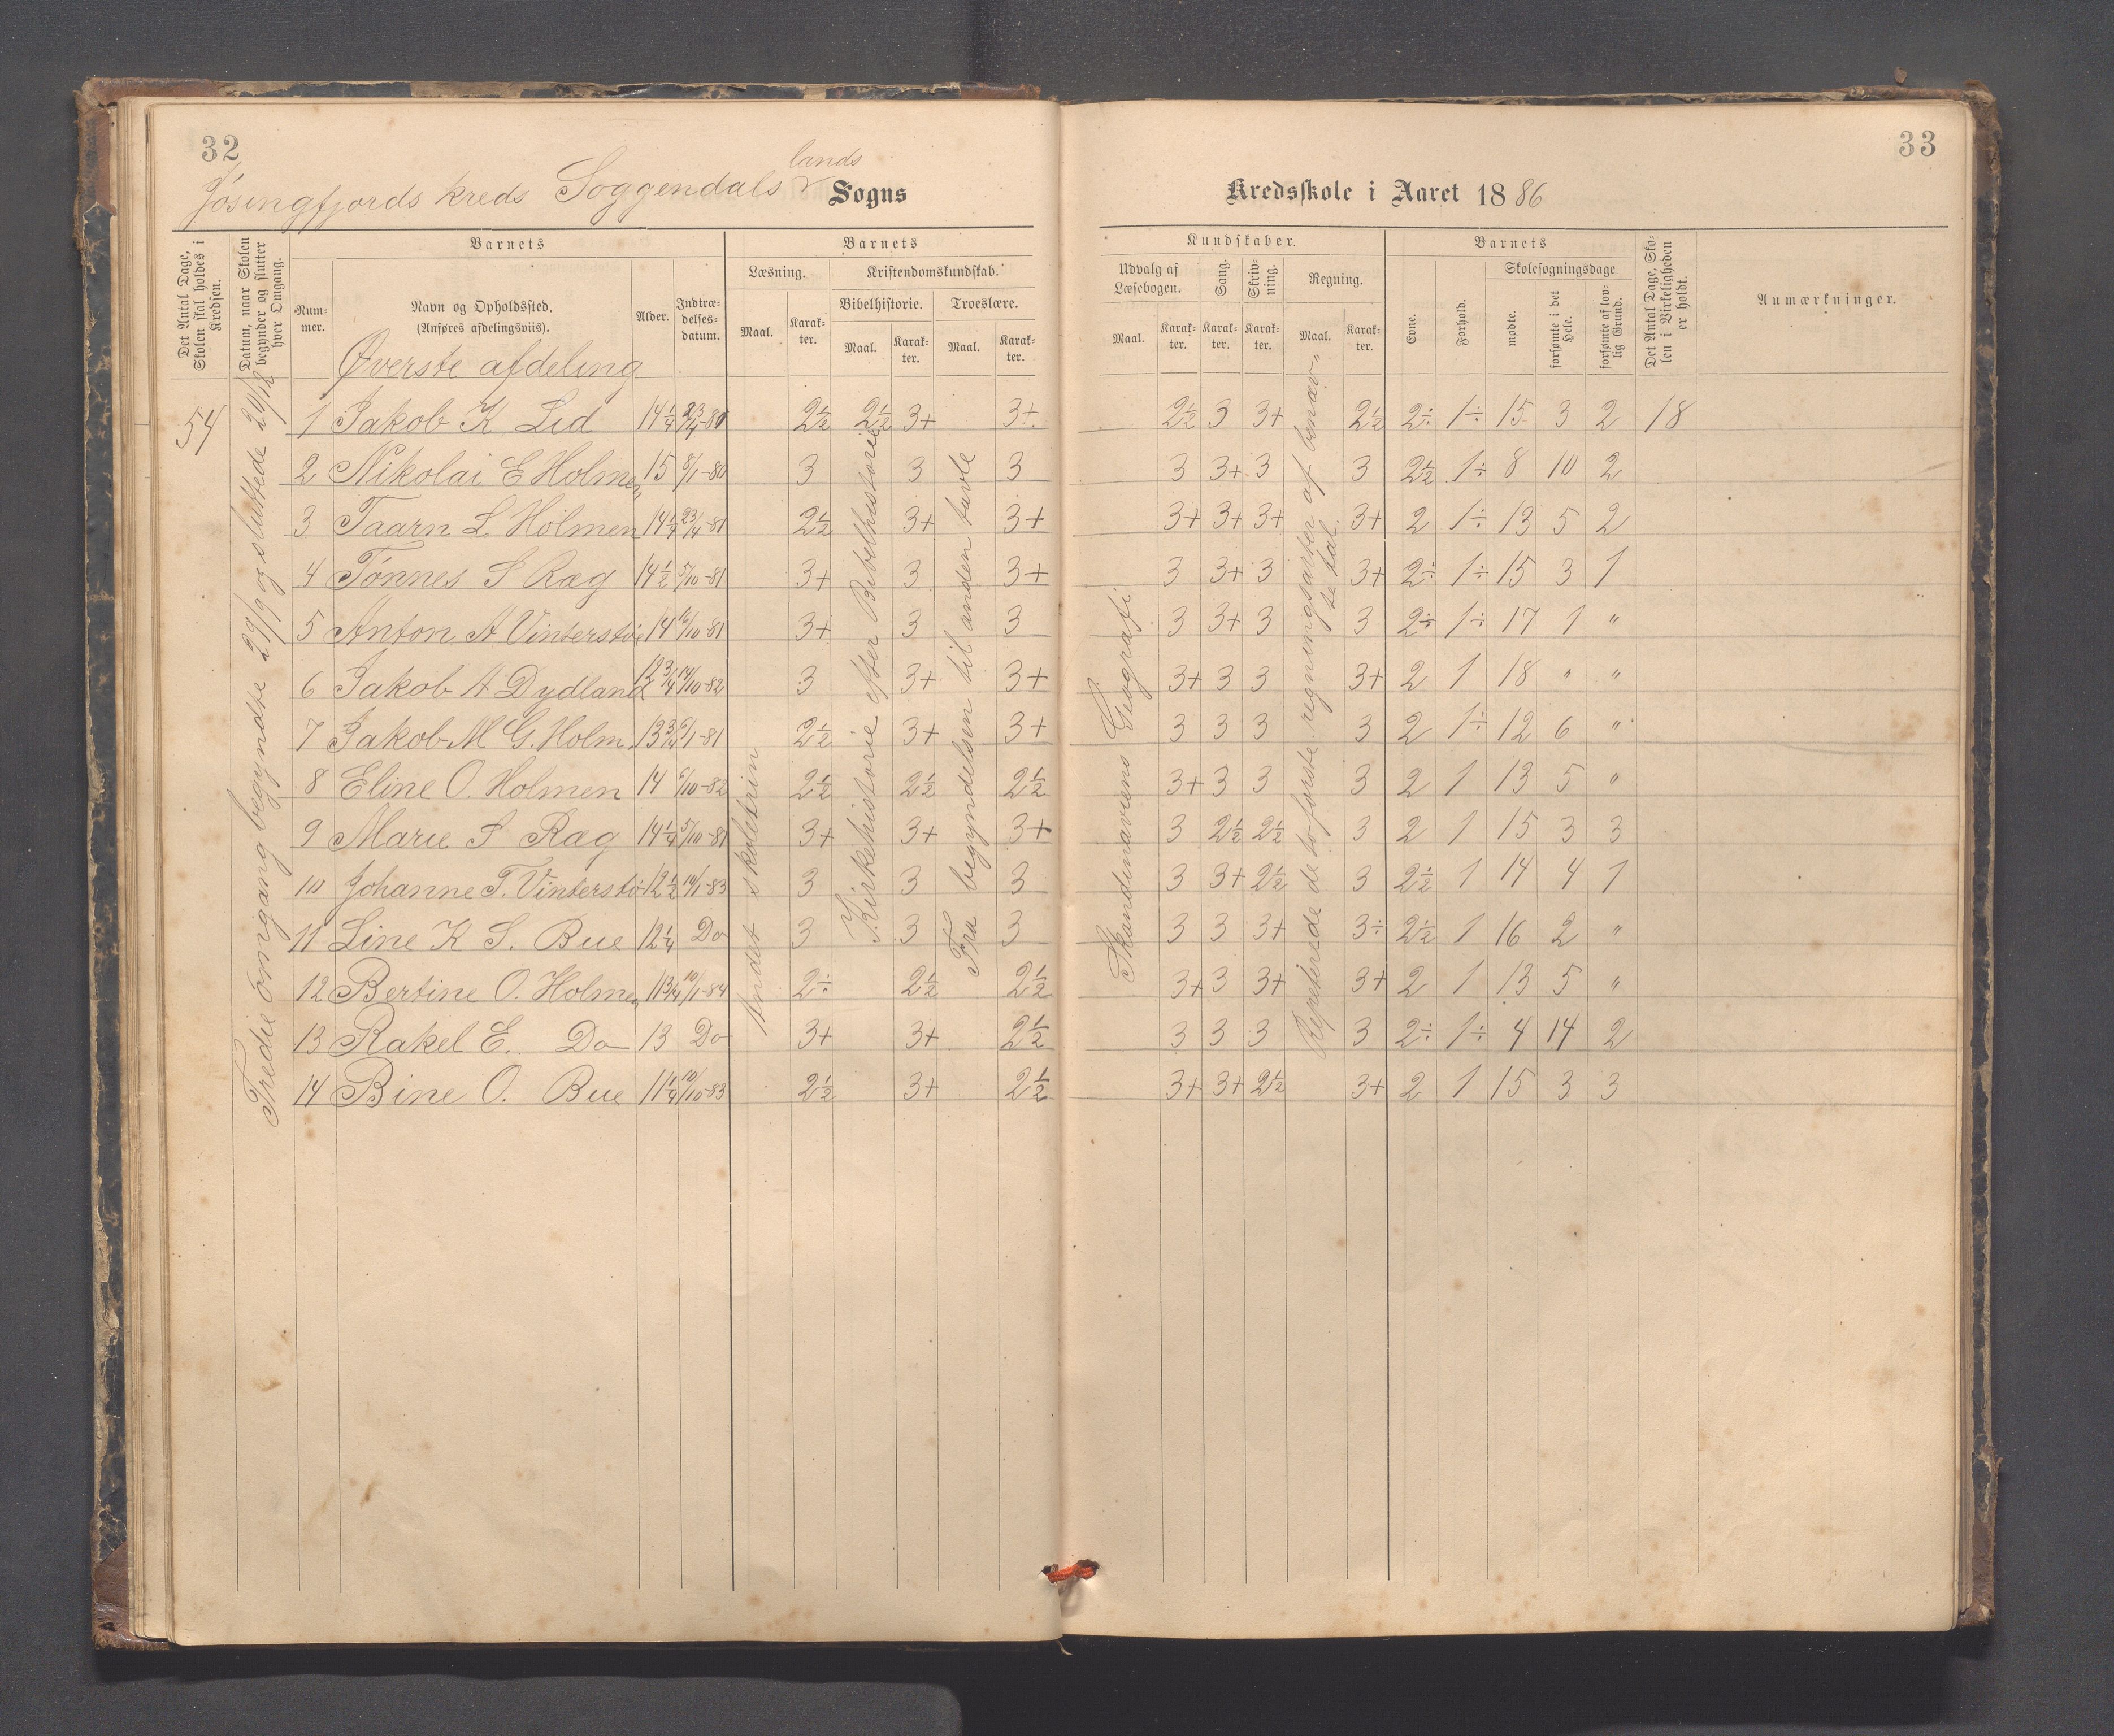 32
33
lands
Jósingfjords kreds Soggendals v Sogns
Kredsskole i Aaret 1886
Det Antal Dage, Skolen skal holdes i Kredsen.
Datum, naar Skolen begynder og slutter hver Omgang.
Barnets
Nummer.
Navn og Opholdssted. (Anføres afdelingsviis).
Alder.
Indtrædelsesdatum.
Barnets
Læsning.
Kristendomskundskab.
Bibelhistorie.
Troeslære.
Maal. Karakter. Maal. Karakter. Maal. Karakter.
Kundskaber.
Udvalg af Læsebogen.
Sang.
Skrivning.
Regning.
Maal. Karakter. Karakter. Karakter. Maal. Karakter.
Barnets
Evne.
Forhold.
Skolesøgningsdage
mødte.
forsømte i det Hele.
forsømte af lovlig Grund.
Det Antal Dage, Skolen i Virkeligheden er holdt.
Anmærkninger.
Øverste afdeling
54
Tredie omgang begyndte 29/9 og sluttede 20/12
Andet skoletrin
Kirkehistorie efter Bibelhistorie
Fra begyndelsen til anden tavle
Skandinaviens Geografi
Repeterede de to første regningsarter af benævnte tal.
1 Jakob K Lid 14 1/4 23/4-80 2 1/2 2 1/2 3+ 3+ 2 1/2 3 3+ 2 1/2 2÷ 1÷ 15 3 2 18
2 Nikolai E Holmen 15 8/1-80 3 3 3 3 3+ 3 3 2 1/2 1÷ 8 10 2
3 Taarn L Holmen 14 1/4 23/4-81 2 1/2 3+ 3+ 3+ 3+ 3+ 3+ 2 1÷ 13 5 2
4 Tønnes S Ræg 14 1/2 5/10-81 3+ 3 3+ 3 3+ 3 3+ 2÷ 1÷ 15 3 1
5 Anton A Vinterstø 14 6/10-81 3+ 3 3 3 3+ 3 3 2÷ 1÷ 17 1 "
6 Jakob A Dydland 12 3/4 14/10-82 3 3+ 3+ 3+ 3 3 3+ 2 1 18 " "
7 Jakob M G. Holm 13 3/4 5/1-81 2 1/2 3+ 3+ 3 3 3 3 2 1÷ 12 6 "
8 Eline O. Holmen 14 6/10-82 2 1/2 2 1/2 2 1/2 3+ 3 3 3 2 1 13 5 "
9 Marie S Rag 14 1/4 5/10-81 3+ 3+ 3+ 3 2 1/2 2 1/2 3 2 1 15 3 3
10 Johanne T. Vinterstø 12 1/2 14/1-83 3 3 3 3 3+ 2 1/2 3 2 1/2 1 14 4 1
11 Line K S. Bue 12 1/4 Do 3 3 3 3 3 3+ 3÷ 2 1/2 1 16 2 "
12 Bertine O. Holmen 11 3/4 10/1-84 2÷ 2 1/2 2 1/2 3+ 3 3+ 3+ 2 1 13 5 "
13 Rakel E. Do 13 Do 3+ 3+ 2 1/2 3 3 3 3 2÷ 1÷ 4 14 2
14 Bine O. Bue 11 1/4 10/10-83 2 1/2 3+ 2 1/2 3+ 3+ 2 1/2 3+ 2 1 15 3 3